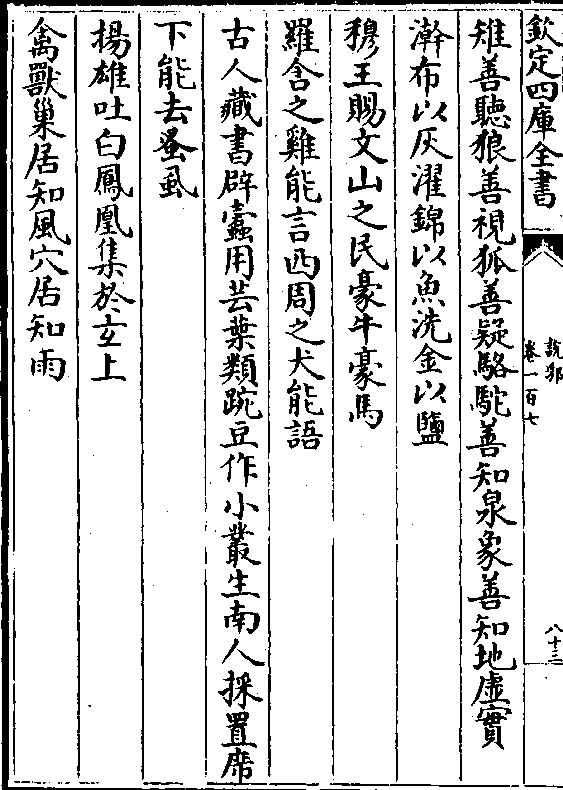 欽定四庫全書
說郛
卷一百七
八十三
雉善聽狼善視狐善疑駱駝善知泉象善知地虛實
澣布以灰濯錦以魚洗金以鹽
穆王賜文山之民豪牛豪馬
羅含之雞能言西周之犬能語
古人藏書辟蠧用芸葉類豌豆作小叢生南人採置席
下能去蚤虱
揚雄吐白鳳凰集於玄上
禽獸巢居知風穴居知雨